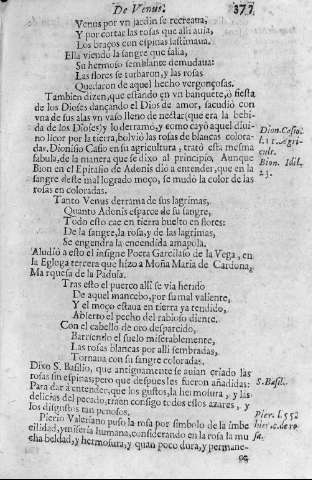 De Venus. 377
Venus por vn jardin se recreaua,
Y por cortar las rosas que alli auia,
Los braços con espinas lastimaua.
Ella viendo la sangre que salia,
Su hermoso semblante demudaua:
Las flores se turbaron, y las rosas
Quedaron de aquel hecho vergonçosas.
Tambien dizen, que estando en vn banquete, ò fiesta
de los Dioses dançando el Dios de amor, sacudiò con
vna de sus alas vn vaso lleno de nectar (que era la bebi-
da de los Dioses) y lo derramò, y como cayò aquel diui-
no licor por la tierra, bolviò las rosas de blancas colora-
das. Dionisio Casio en su agricultura, tratò esta mesma
fabula, de la manera que se dixo al principio, Aunque
Bion en el Epitafio de Adonis diò a entender, que en la
sangre deste mal logrado moço, se mudò la color de las
rosas en coloradas.
Dion. Casio.
l.11. Agri-
cult.
Bion. Idil.
23.
Tanto Venus derrama de sus lagrimas,
Quanto Adonis esparce de su sangre,
Todo esto cae en tierra buelto en flores:
De la sangre, la rosa, y de las lagrimas,
Se engendra la encendida amapola.
Aludiò a esto el insigne Poeta Garcilaso de la Vega, en
la Egloga tercera que hizo a Moña Maria de Cardona,
Marquesa de la Padusa.
Tras esto el puerco alli se via herido
De aquel mancebo, por su mal valiente,
Y el moço estaua en tierra ya tendido,
Abierto el pecho del rabioso diente.
Con el cabello de oro desparcido,
Barriendo el suelo miserablemente,
Las rosas blancas por alli sembradas,
Tornaua con su sangre coloradas.
Dixo S. Basilio, que antiguamente se auian criado las
rosas sin espinas; pero que despues les fueron añadidas:
Para dar a entender, que los gustos, la hermosura, y las
delicias del pecado, traen consigo todos estos azares, y
los disgustos tan penosos.
S. Basil.
Pierio Valeriano puso la rosa por simbolo de la imbe-
cilidad, y miseria humana, considerando en la rosa la mu-
cha beldad, y hermosura, y quan poco dura, y permane-
Pier. l.55
hier. c. de ro
sa.